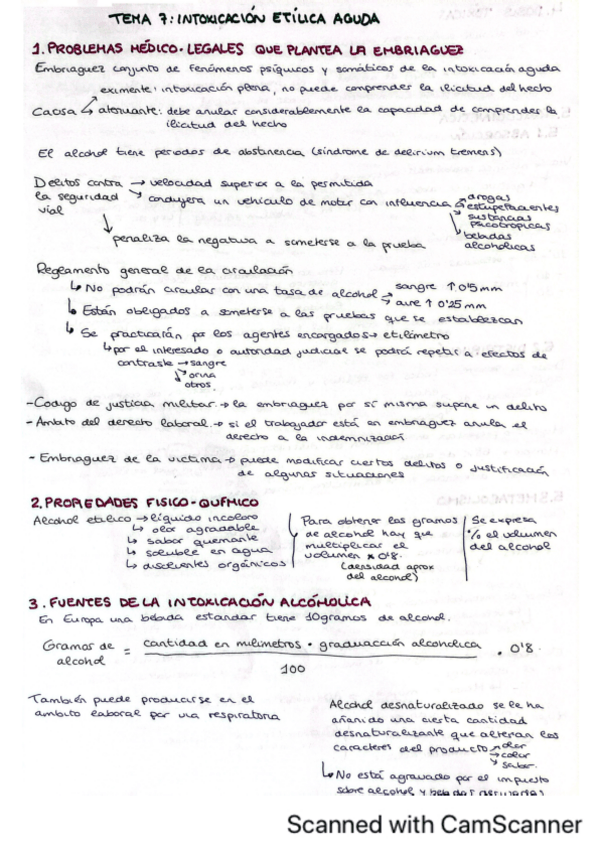 TEMA 7: INTOXICACIÓN ETÍLICA AGUDA
1. PROBLEMAS MÉDICO-LEGALES QUE PLANTEA LA EMBRIAGUEZ
Embriaguez conjunto de fenómenos psíquicos y somáticos de la intoxicación aguda
eximente: intoxicación plena, no puede comprender la ilicitud del hecho
Causa ↳ atenuante: debe anular considerablemente la capacidad de comprender la
ilicitud del hecho
El alcohol tiene periodos de abstinencia (síndrome de delirium tremens)
Delitos contra → velocidad superior a la permitida
la seguridad → condujera un vehículo de motor con influencia → drogas
vial
estupefacientes
sustancias
psicotropicas
bebidas
alcoholicas
↓ penaliza la negativa a someterse a la prueba
Reglamento general de la circulación
↳ No podrán circular con una tasa de alcohol → sangre ↑ 0'5 mm
→ aire ↑ 0'25 mm
↳ Están obligados a someterse a las pruebas que se establezcan
↳ Se practicarán por los agentes encargados → etilómetro
↳ por el interesado o autoridad judicial se podrá repetir a efectos de
contraste → sangre
→ orina
otros.
- Codigo de justicia militar → la embriaguez por sí misma supone un delito
- Ámbito del derecho laboral → si el trabajador está en embriaguez anula el
derecho a la indemnización
- Embriaguez de la victima → puede modificar ciertos delitos o justificación
de algunas situaciones
2. PROPIEDADES FISICO-QUÍMICO
Alcohol etílico → líquido incoloro
↳ olor agradable
↳ sabor quemante
↳ soluble en agua
↳ disolventes orgánicos
Para obtener los gramos
de alcohol hay que
multiplicar el
volumen x 0'8.
(densidad aprox
del alcohol)
Se expresa
% el volumen
del alcohol
3. FUENTES DE LA INTOXICACIÓN ALCOHÓLICA
En Europa una bebida estandar tiene 10gramos de alcohol.
Gramos de alcohol = cantidad en milimetros · graduacción alcoholica / 100 · 0'8
También puede producirse en el
ambito laboral por via respiratoria
Alcohol desnaturalizado se le ha
añanido una cierta cantidad
desnaturalizante que alteran los
caracteres del producto → olor
→ color
→ sabor.
↳ No está agravado por el impuesto
sobre alcohol y bebidas
Scanned with CamScanner